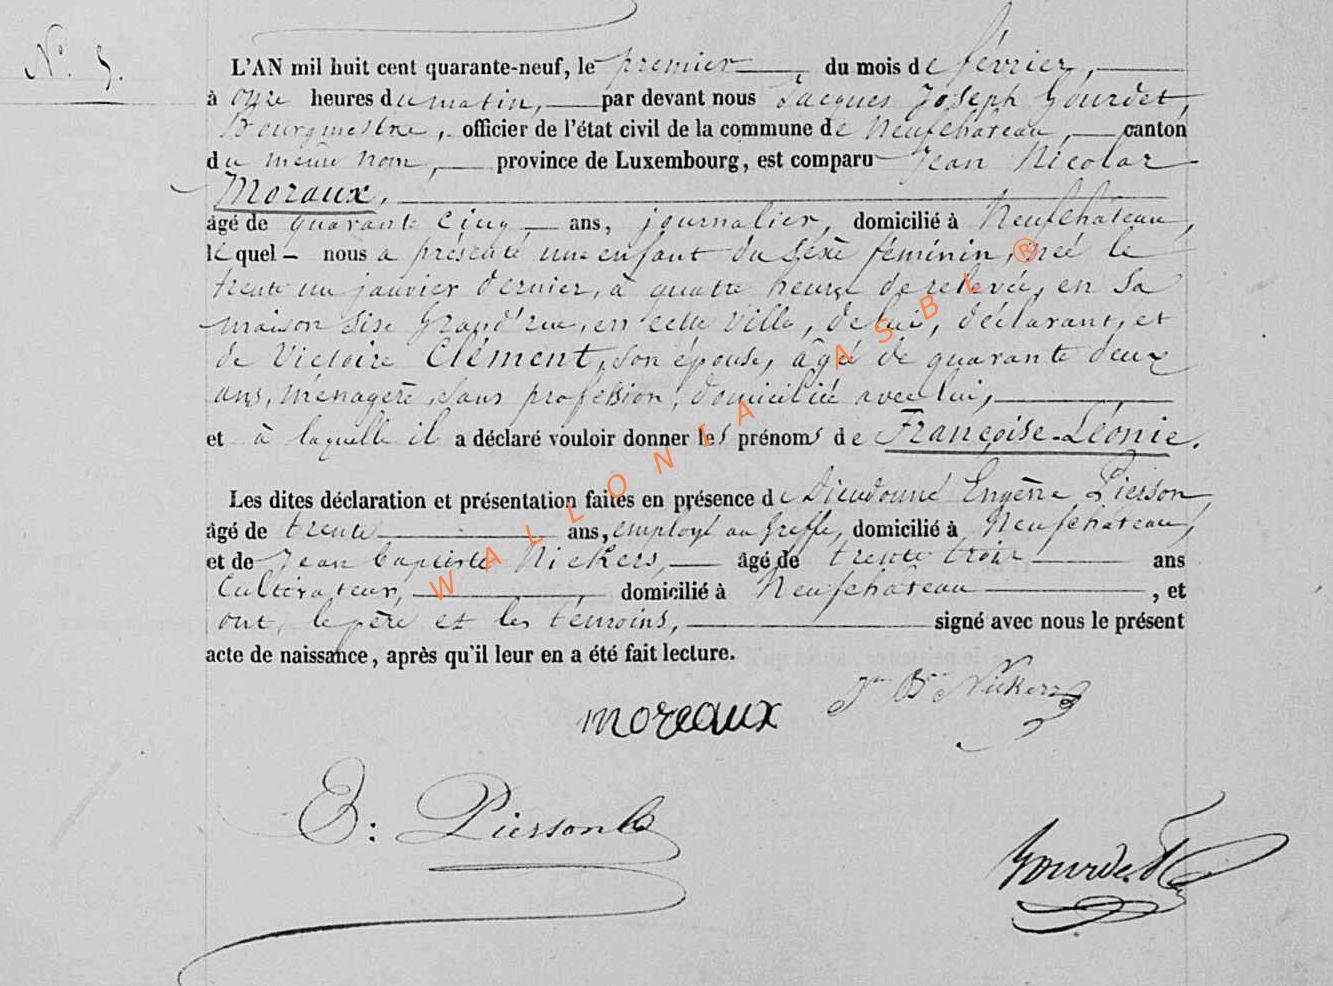 N° 5.
L'AN mil huit cent quarante-neuf, le premier, du mois de février,
à onze heures du matin, par devant nous Jacques Joseph Gourdet,
Bourgmestre, officier de l'état civil de la commune de Neufchâteau, canton
du même nom, province de Luxembourg, est comparu Jean Nicolas
Moraux,
âgé de quarante cinq ans, journalier, domicilié à Neufchâteau,
lequel nous a présenté une enfant du sexe féminin, née le
trente un janvier dernier, à quatre heures de relevée, en sa
maison sise Grand'rue, en cette ville, de lui, déclarant, et
de Victoire Clément, son épouse, âgée de quarante deux
ans, ménagère, sans profession, domiciliée avec lui,
et à laquelle il a déclaré vouloir donner les prénoms de Françoise-Léonie.
Les dites déclaration et présentation faites en présence de Dieudonné Eugène Pierson
âgé de trente ans, employé au Greffe, domicilié à Neufchâteau,
et de Jean Baptiste Nickers, âgé de trente trois ans
Cultivateur, domicilié à Neufchâteau, et
ont, le père et les témoins, signé avec nous le présent
acte de naissance, après qu'il leur en a été fait lecture.
Jn Bte Nickers
moreaux
E: Pierson
Gourdet
WALLONIA ASBL ®